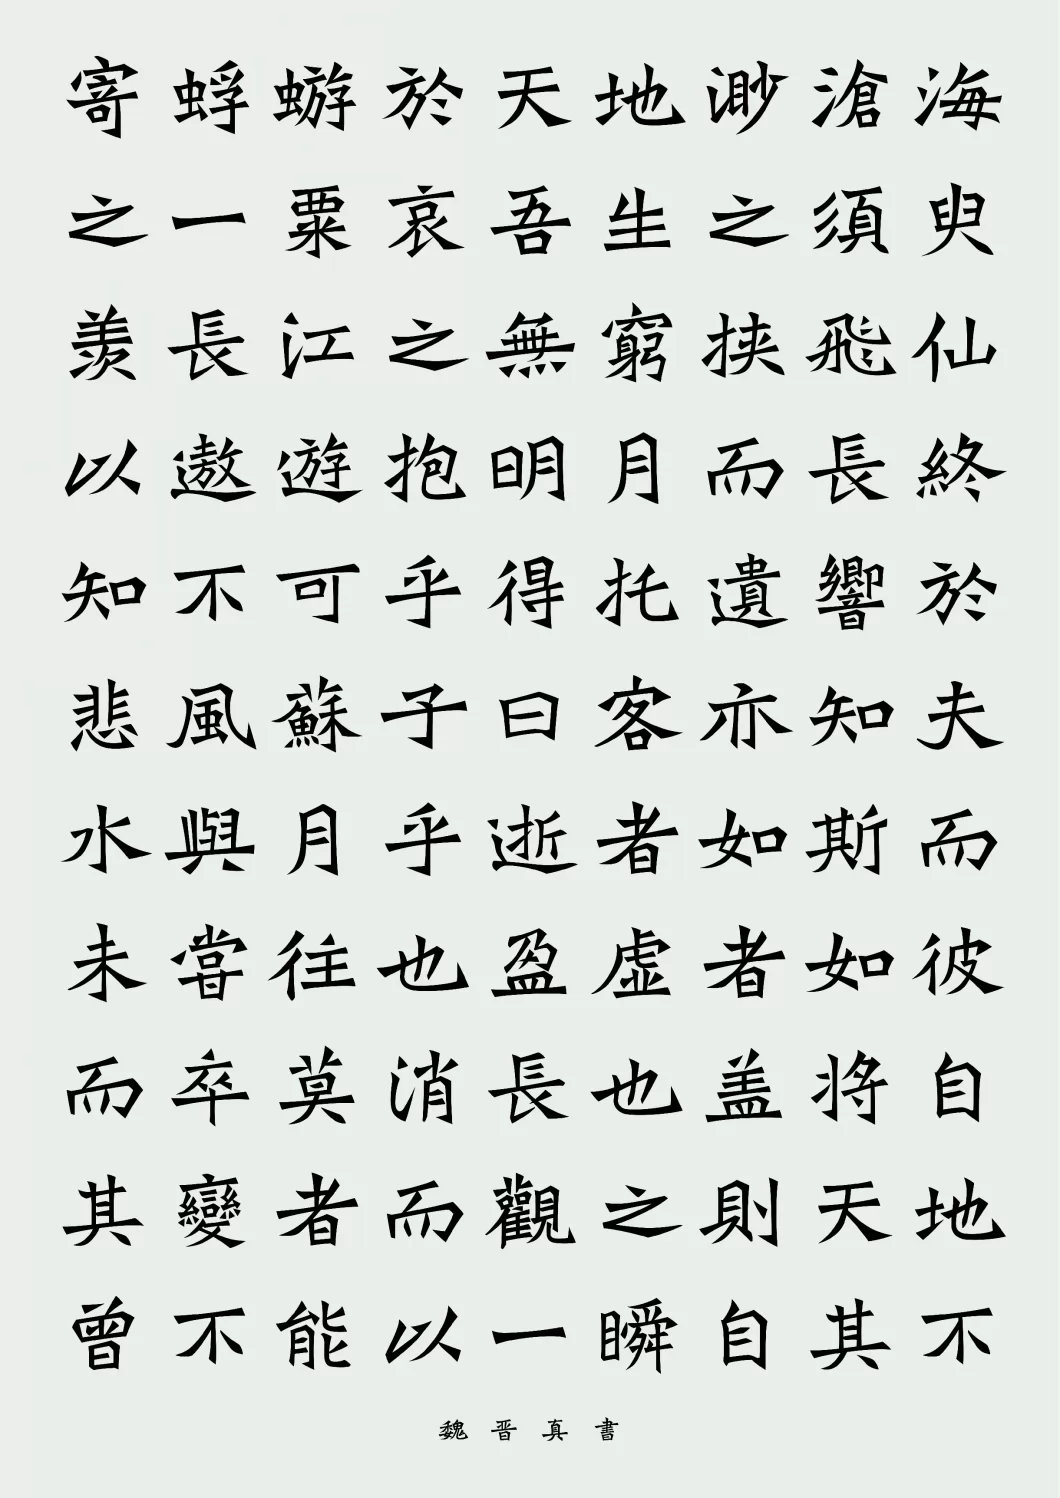 寄蜉蝣於天地渺滄海
之一粟哀吾生之須臾
羨長江之無窮挾飛仙
以遨遊抱明月而長終
知不可乎得托遺響於
悲風蘇子曰客亦知夫
水與月乎逝者如斯而
未嘗往也盈虛者如彼
而卒莫消長也盖將自
其變者而觀之則天地
曾不能以一瞬自其不
魏晋真書